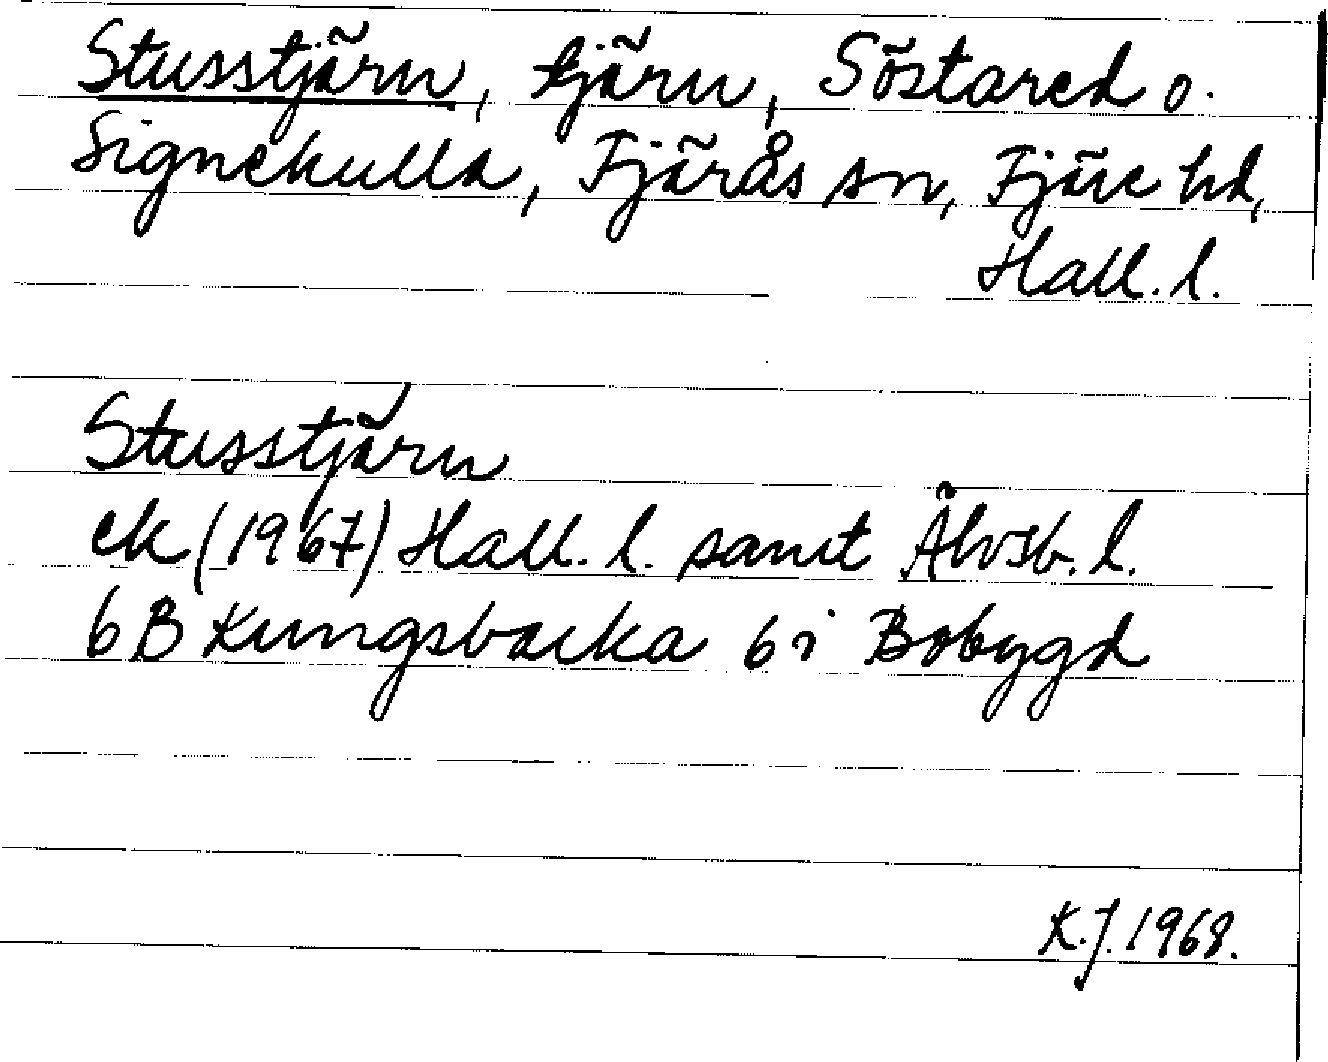 Stusstjärn, tjärn, Söstared o.
Signekulla, Fjärås sn, Fjäre hd,
Hall. l.
Stusstjärn
ek (1967) Hall. l. samt Älvsb. l.
6 B Kungsbacka 6 i Bobygd
K.J. 1968.